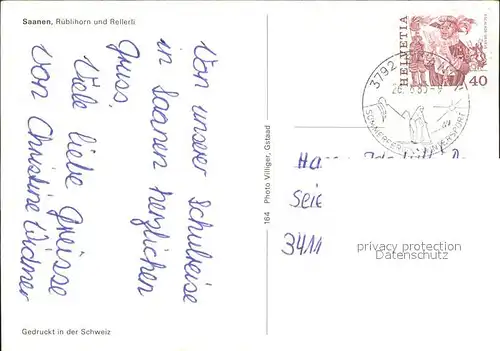 Saanen, Rüblihorn und Rellerli
Von unserer Schulreise
in Saanen herzlichen
Gruss.
Viele liebe Grüsse
von Christine Widmer
Gedruckt in der Schweiz
164 Photo Villiger, Gstaad
HELVETIA
40
3792
SOMMERFERIEN
WINTERSPORT
Seie
3411
privacy protection
Datenschutz